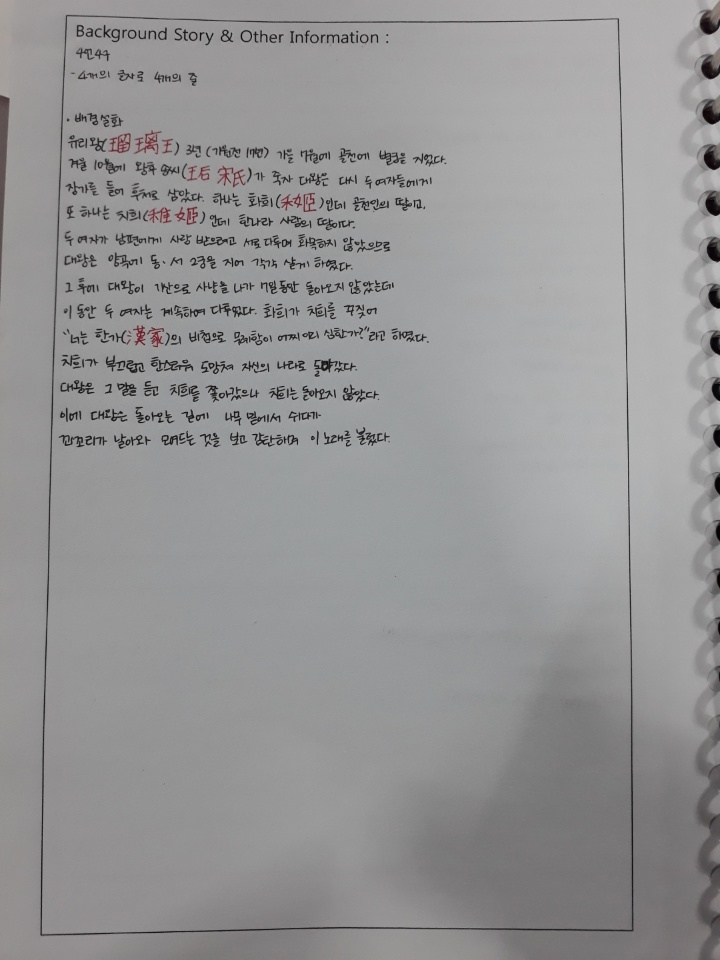 Background Story & Other Information :
4언4구
- 4개의 글자로 4개의 줄
· 배경설화
유리왕(瑠璃王) 3년 (기원전 17년) 가을 7월에 골천에 별궁을 지었다.
겨울 10월에 왕후 송씨(王后 宋氏)가 죽자 대왕은 다시 두 여자들에게
장가를 들어 후처로 삼았다. 하나는 화희(禾姬)인데 골천인의 딸이고,
또 하나는 치희(稚姬)인데 한나라 사람의 딸이다.
두 여자가 남편에게 사랑 받으려고 서로 다투며 화목하지 않았으므로
대왕은 양곡에 동·서 2궁을 지어 각각 살게 하였다.
그 후에 대왕이 기산으로 사냥을 나가 7일동안 돌아오지 않았는데
이 동안 두 여자는 계속하여 다투었다. 화희가 치희를 꾸짖어
"너는 한가(漢家)의 비첩으로 무례함이 어찌 이리 심한가?"라고 하였다.
치희가 부끄럽고 한스러워 도망쳐 자신의 나라로 돌아갔다.
대왕은 그 말을 듣고 치희를 쫓아갔으나 치희는 돌아오지 않았다.
이에 대왕은 돌아오는 길에 나무 밑에서 쉬다가
꾀꼬리가 날아와 모여드는 것을 보고 감탄하며 이 노래를 불렀다.